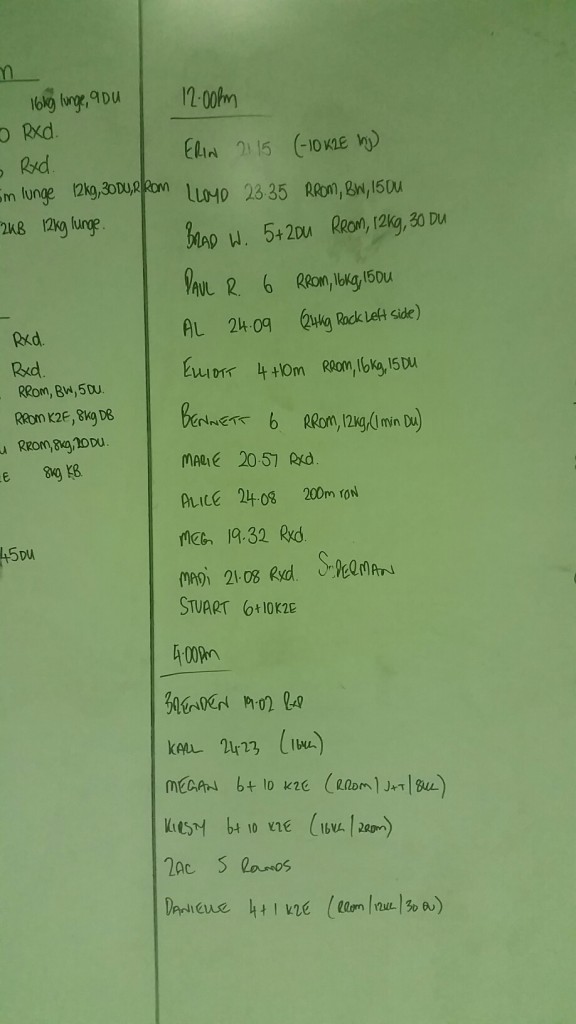 16kg lunge, 9DU
Rxd.
Rxd.
m lunge 12kg, 30DU, RROM
2KB 12kg lunge.
Rxd.
Rxd.
RROM, BW, 5DU.
RROM K2E, 8kg DB
RROM, 8kg, 20DU.
E 8kg KB
45DU
12.00pm
ERIN 21 15 (-10 K2E
LLOYD 23.35 RROM, BW, 15DU
BRAD W. 5+2DU RROM, 12kg, 30 DU
PAUL R. 6 RROM, 16kg, 15DU
AL 24.09 (24kg Rack Left side)
ELLIOTT 4+10m RROM, 16kg, 15DU
BENNETT 6 RROM, 12kg, (1 min DU)
MARIE 20.57 Rxd.
ALICE 24.08 200m row
MEG 19.32 Rxd.
MADi 21.08 Rxd. SUPERMAN
STUART 6+10K2E
4.00pm
BRENDEN 19.02 RxD
KARL 24.23 (16KG)
MEGAN 6+10 K2E (RROM/ /8KG)
KIRSTY 6+10 K2E (16KG/RROM)
ZAC 5 Rounds
DANIELLE 4+1 K2E (RROM/12KG/30 DU)